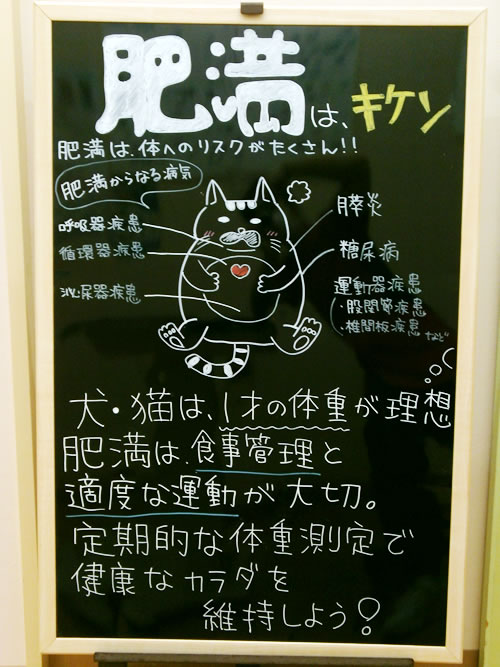 肥満は、キケン
肥満は、体へのリスクがたくさん!!
肥満からなる病気
呼吸器疾患
循環器疾患
泌尿器疾患
膵炎
糖尿病
運動器疾患
・股関節疾患
・椎間板疾患など
犬・猫は、1才の体重が理想
肥満は、食事管理と
適度な運動が大切。
定期的な体重測定で
健康なカラダを
維持しよう?